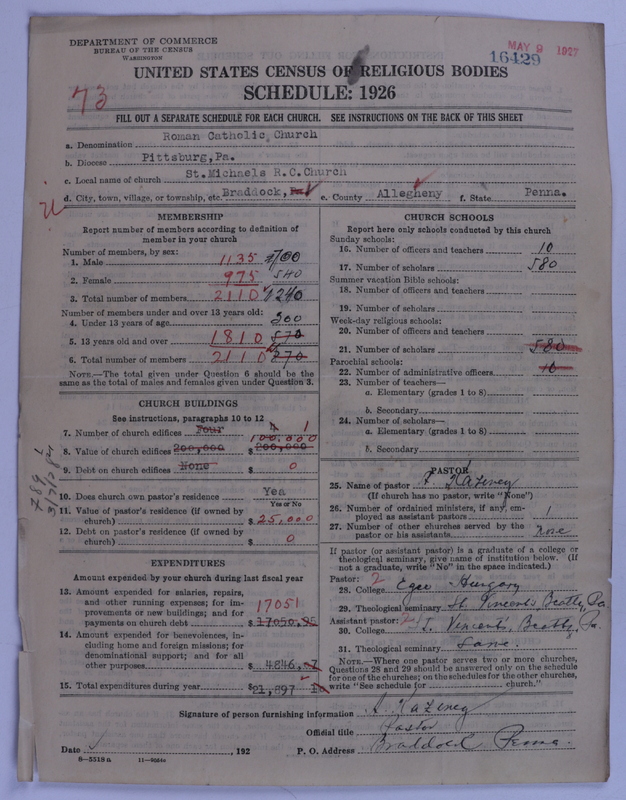 DEPARTMENT OF COMMERCE
BUREAU OF THE CENSUS
WASHINGTON
MAY 9 1927
16429
UNITED STATES CENSUS OF RELIGIOUS BODIES
SCHEDULE: 1926
73
FILL OUT A SEPARATE SCHEDULE FOR EACH CHURCH. SEE INSTRUCTIONS ON THE BACK OF THIS SHEET
a. Denomination Roman Catholic Church
b. Diocese Pittsburg, Pa.
c. Local name of church St. Michaels R.C. Church
d. City, town, village, or township, etc. Braddock, Pa. e. County Allegheny f. State Penna.
MEMBERSHIP
Report number of members according to definition of
member in your church
Number of members, by sex:
1. Male 1135 700
2. Female 975 540
3. Total number of members 2110 1240
Number of members under and over 13 years old:
4. Under 13 years of age 300
5. 13 years old and over 1810 570
6. Total number of members 2110 870
NOTE.—The total given under Question 6 should be the
same as the total of males and females given under Question 3.
CHURCH BUILDINGS
See instructions, paragraphs 10 to 12
7. Number of church edifices Four 1
100,000
8. Value of church edifices 200,000 $ 200,000
9. Debt on church edifices None $ 0
10. Does church own pastor's residence Yea
Yes or No
11. Value of pastor's residence (if owned by
church) $ 25,000
12. Debt on pastor's residence (if owned by
church) $ 0
EXPENDITURES
Amount expended by your church during last fiscal year
13. Amount expended for salaries, repairs,
and other running expenses; for im-
provements or new buildings; and for
payments on church debt 17051 $ 17050.95
14. Amount expended for benevolences, in-
cluding home and foreign missions; for
denominational support; and for all
other purposes $ 4846.
15. Total expenditures during year $ 21,897
CHURCH SCHOOLS
Report here only schools conducted by this church
Sunday schools:
16. Number of officers and teachers 10
17. Number of scholars 580
Summer vacation Bible schools:
18. Number of officers and teachers
19. Number of scholars
Week-day religious schools:
20. Number of officers and teachers
21. Number of scholars 580
Parochial schools:
22. Number of administrative officers 10
23. Number of teachers—
a. Elementary (grades 1 to 8)
b. Secondary
24. Number of scholars—
a. Elementary (grades 1 to 8)
b. Secondary
PASTOR
25. Name of pastor
(If church has no pastor, write "None")
26. Number of ordained ministers, if any, em-
ployed as assistant pastors 1
27. Number of other churches served by the
pastor or his assistants none
If pastor (or assistant pastor) is a graduate of a college or
theological seminary, give name of institution below. (If
not a graduate, write "No" in the space indicated.)
Pastor: 2
28. College Eger Hungary
29. Theological seminary St. Vincents, Beatty, Pa
Assistant pastor: 2
30. College St. Vincents, Beatty, Pa.
31. Theological seminary Same
NOTE.—Where one pastor serves two or more churches,
Questions 28 and 29 should be answered only on the schedule
for one of the churches; on the schedules for the other churches,
write "See schedule for church."
Signature of person furnishing information
Official title Pastor
Date , 192 P. O. Address Braddock Penna.
8—5518a 11—9364a